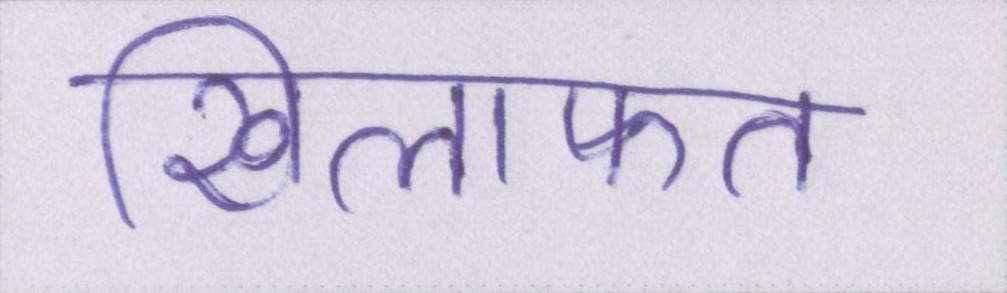 खिलाफत